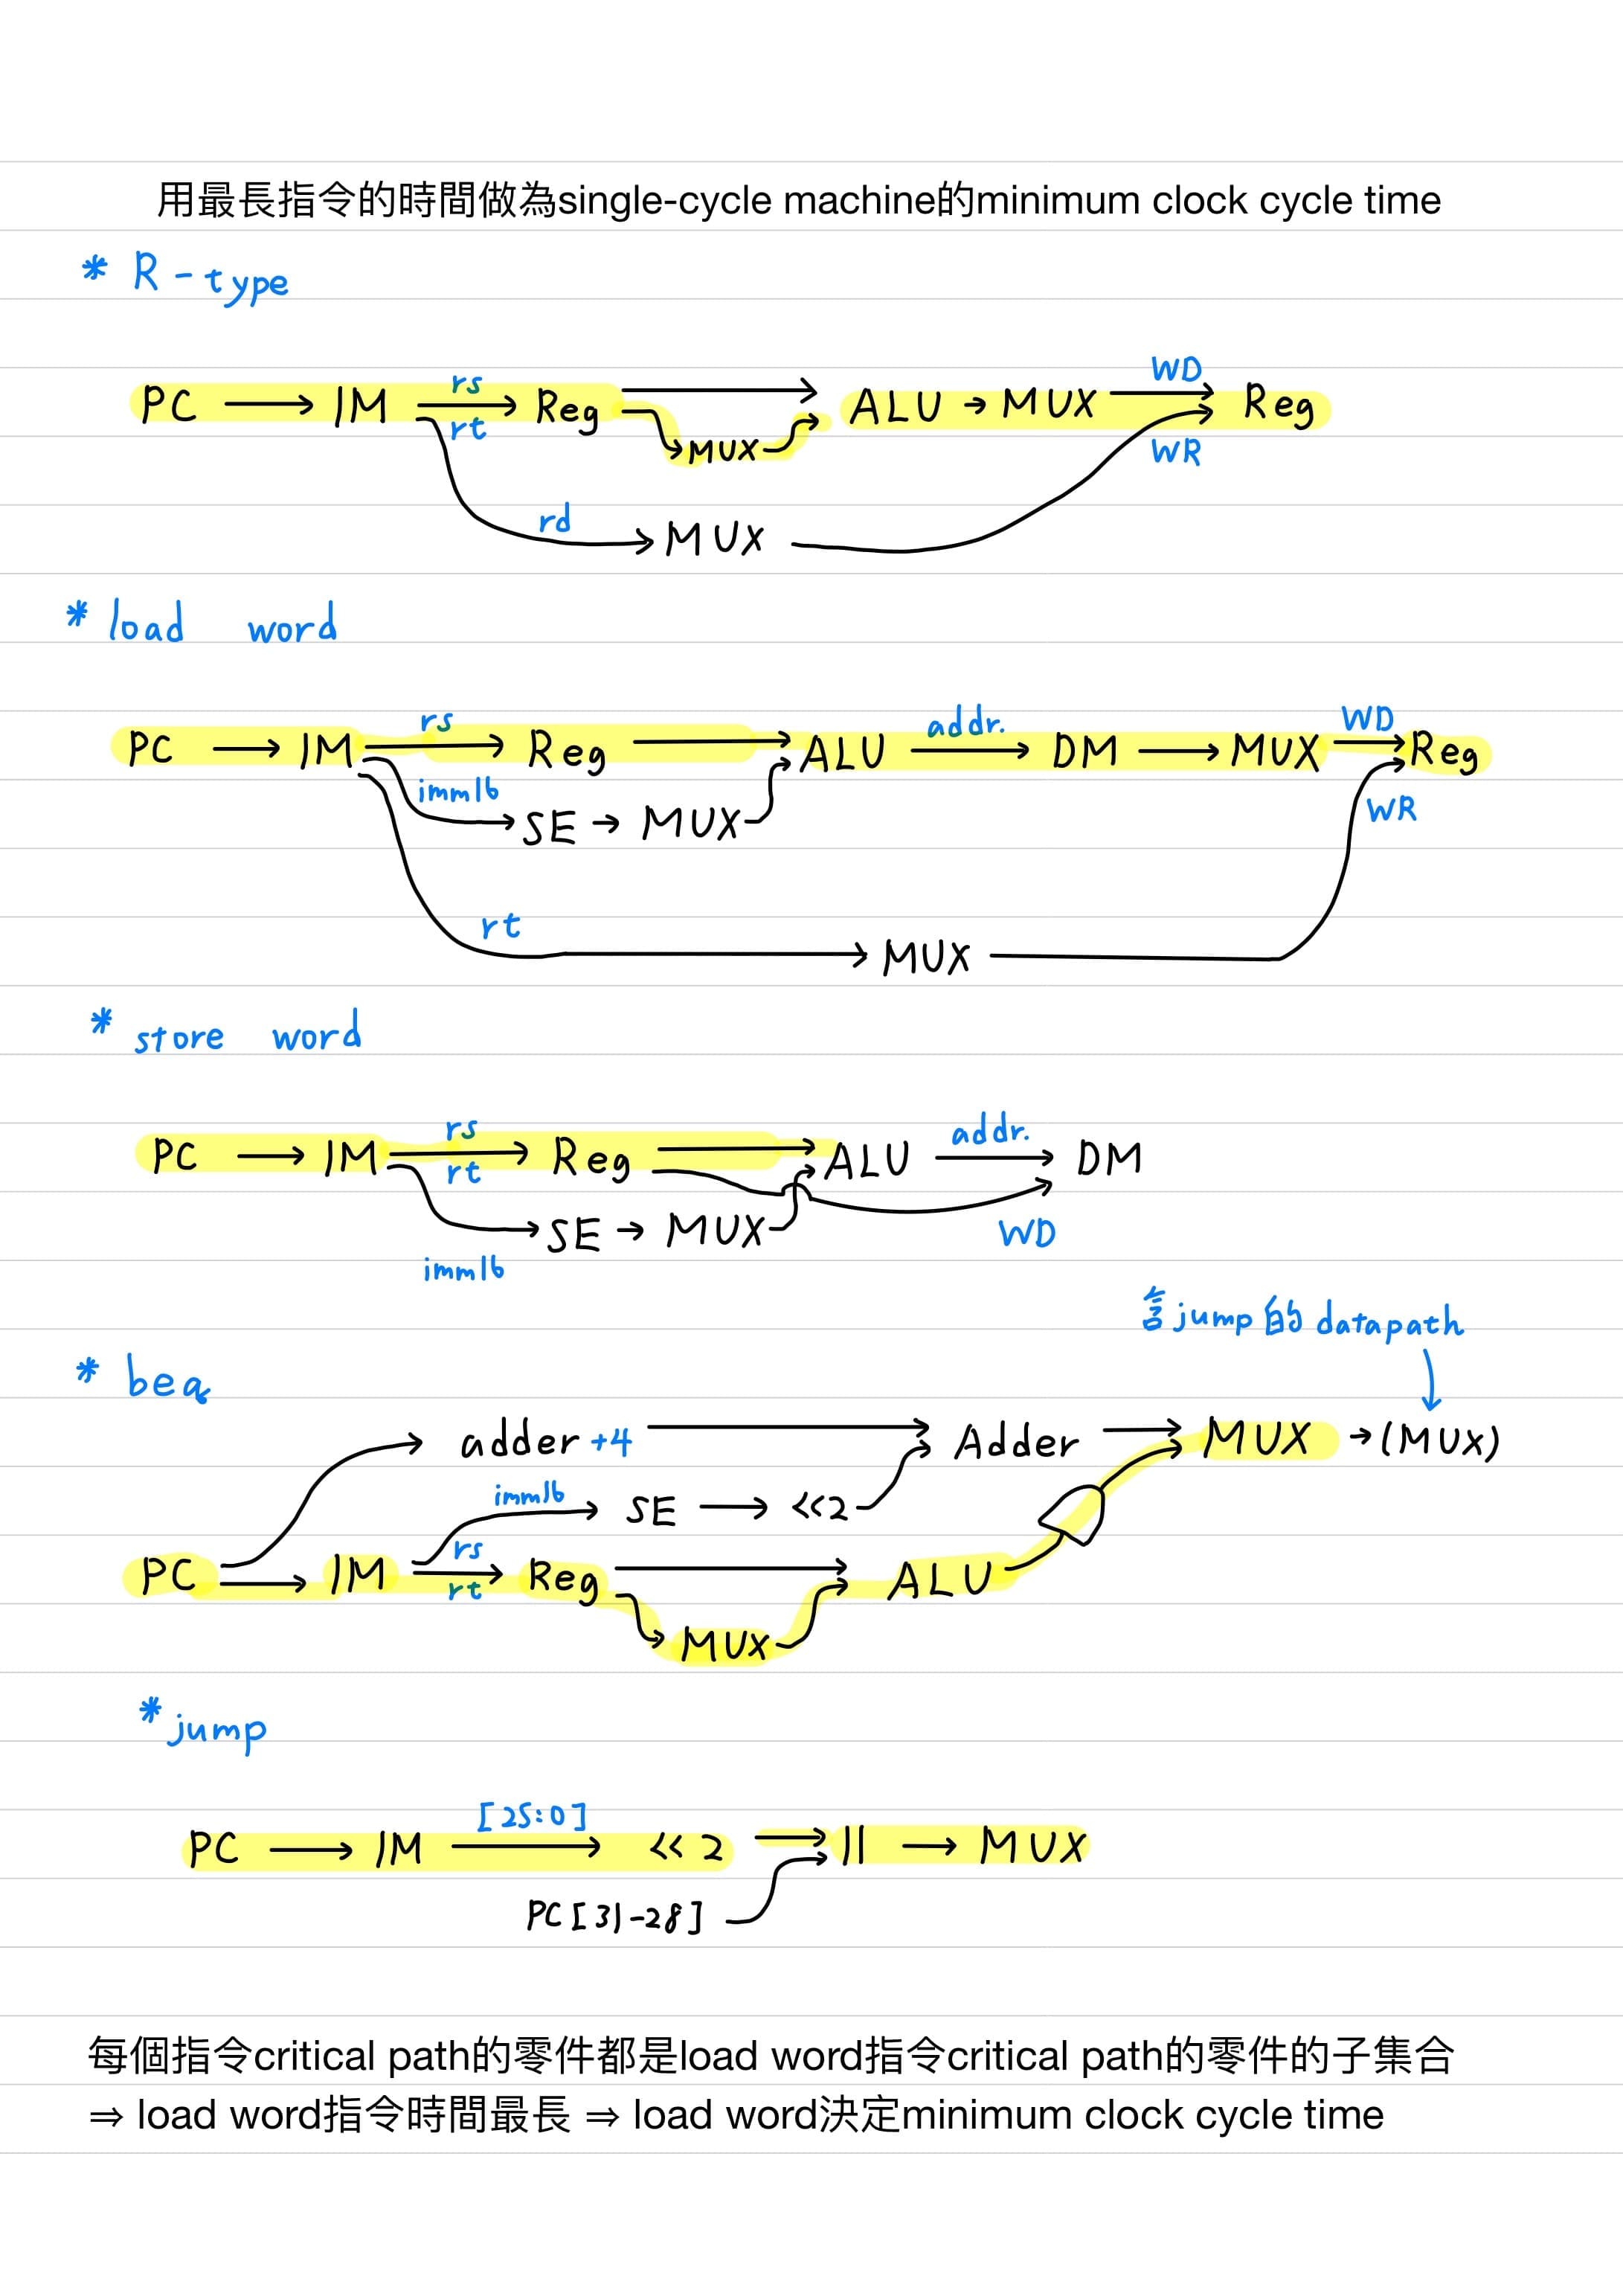 用最長指令的時間做為single-cycle machine的minimum clock cycle time
* R-type
PC → IM rs rt → Reg → ALU → MUX WD → Reg
MUX
WR
rd → MUX
* load word
PC → IM rs → Reg → ALU addr. → DM → MUX WD → Reg
imm16 SE → MUX
WR
rt → MUX
* store word
PC → IM rs rt → Reg → ALU addr. → DM
imm16 SE → MUX
WD
含jump的datapath
* beq
adder +4 → Adder → MUX → (MUX)
imm16 → SE → <<2
PC → IM rs rt → Reg → ALU
MUX
* jump
PC → IM [25:0] → << 2 → || → MUX
PC[31-28]
每個指令critical path的零件都是load word指令critical path的零件的子集合
⇒ load word指令時間最長 ⇒ load word決定minimum clock cycle time